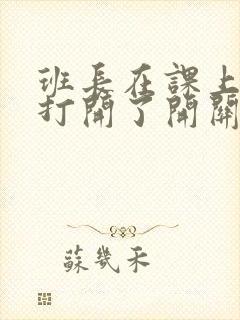 班長在課上
打開了開關
蘇幾禾